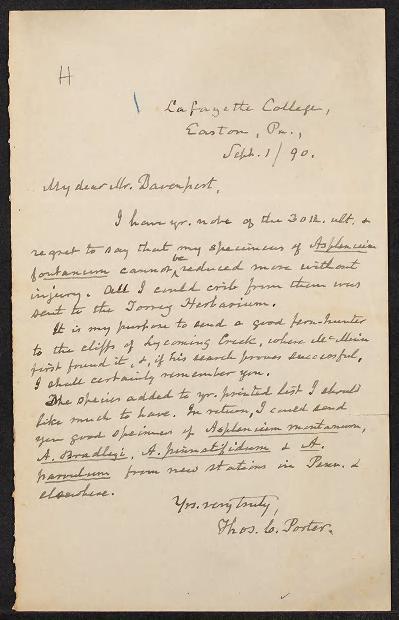 H
Lafayette College,
Easton, Pa.,
Sept. 1/90.
My dear Mr. Davenport,
I have yr. note of the 30th. ult. &
regret to say that my specimens of Asplenium
fontanum cannot be reduced more without
injury. All I could crib from them was
sent to the Torrey Herbarium.
It is my purpose to send a good fern-hunter
to the cliffs of Lycoming Creek, where McMinn
first found it, &, if his search proves successful,
I shall certainly remember you.
The species added to yr. printed list I should
like much to have. In return, I could send
you good specimens of Asplenium montanum,
A. Bradleyi, A. pinnatifidum & A.
parvulum from new stations in Penn. &
elsewhere.
Yrs. very truly,
Thos. C. Porter.